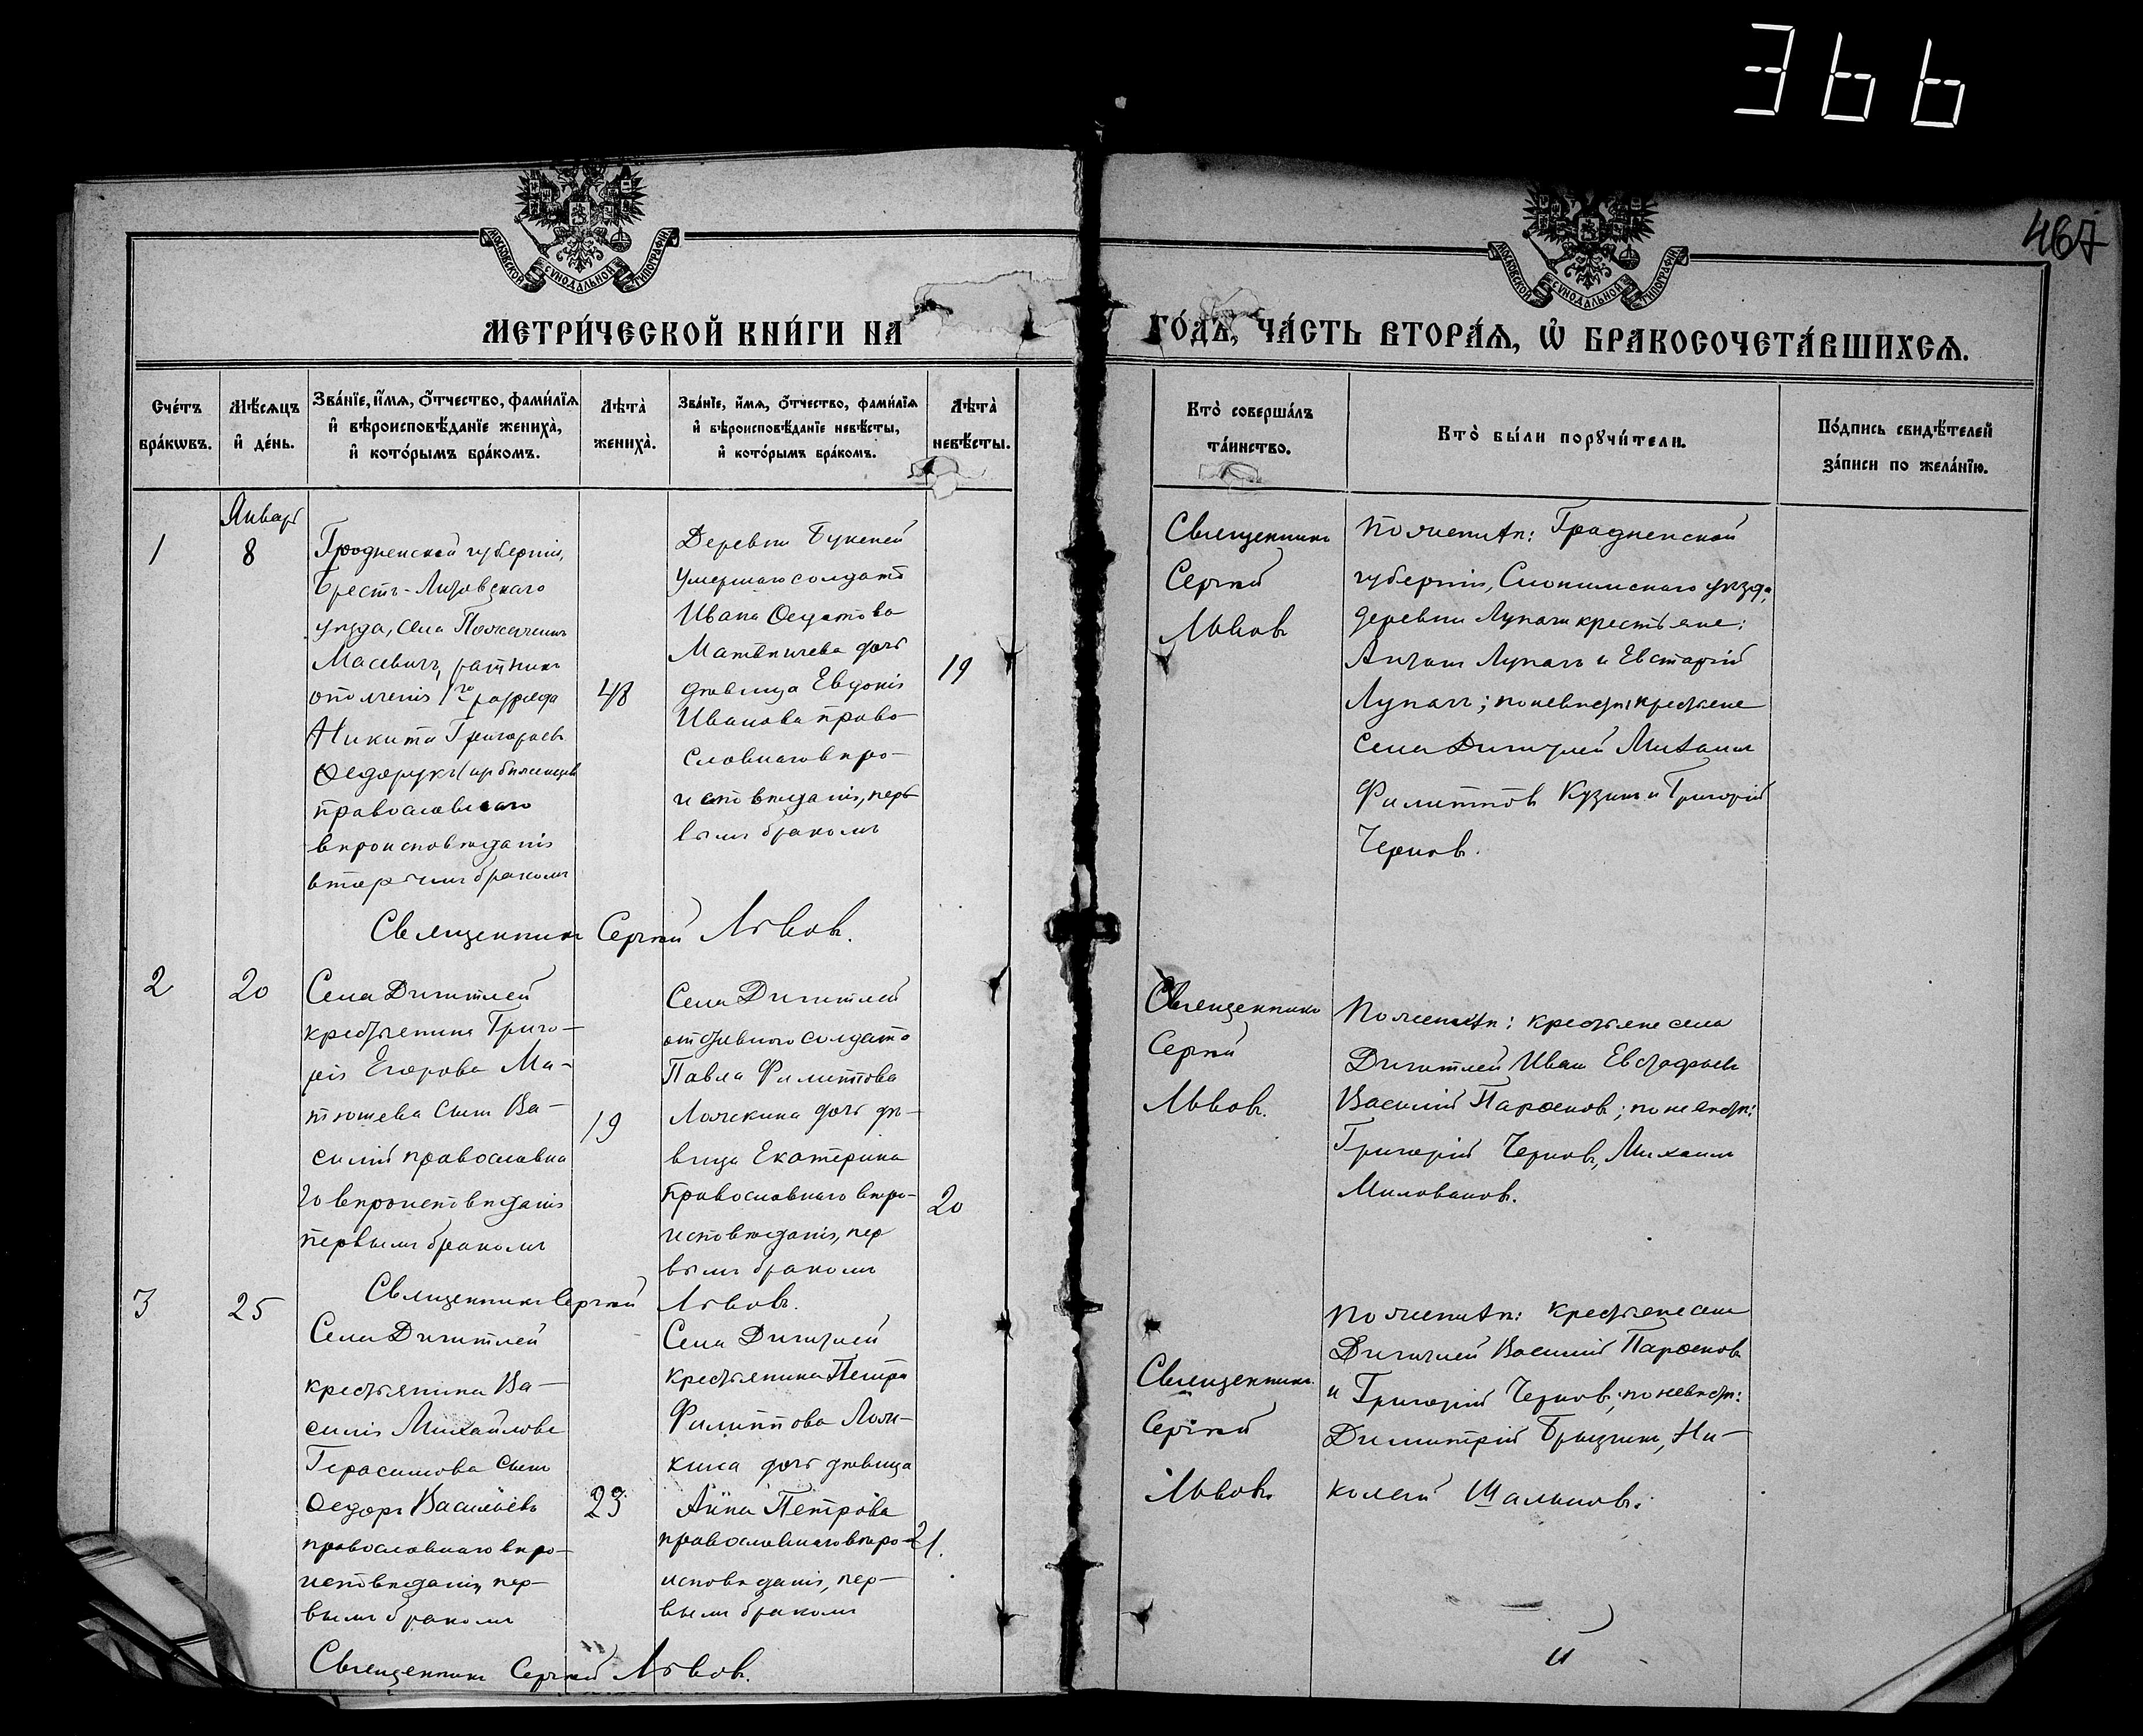 366
467
МОСКОВСКОЙ СѴНОДАЛЬНОЙ ТИПОГРАФІИ
МОСКОВСКОЙ СѴНОДАЛЬНОЙ ТИПОГРАФІИ
МЕТРИ́ЧЕСКОЙ КНИ́ГИ НА
ГО́ДЪ, ЧА́СТЬ ВТОРА́Ѧ, Ѡ҆ БРАКОСОЧЕТА́ВШИХСѦ.
Сче́тъ
бра́кѡвъ.
Мѣ́сѧцъ
и҆ де́нь.
Зва́нїе, и҆́мѧ, о҆́тчество, фами́лїѧ
и҆ вѣроисповѣ́данїе жениха̀,
и҆ кото́рымъ бра́комъ.
Лѣта̀
жениха̀.
Зва́нїе, и҆́мѧ, о҆́тчество, фами́лїѧ
и҆ вѣроисповѣ́данїе невѣ́сты,
и҆ кото́рымъ бра́комъ.
Лѣта̀
невѣ́сты.
Кто̀ соверша́лъ
та́инство.
Кто̀ бы́ли порꙋчи́тели.
По́дпись свидѣ́телей
за́писи по жела́нїю.
Январь
1
8
Гродненской губерніи,
Брестъ-Литовскаго
уѣзда, села
Масевичи, ратникъ
ополченія 1го разряда
Никита Григорьевъ
Ѳедорукъ
православнаго
вѣроисповѣданія
вторымъ бракомъ
48
Деревни Букеней
умершаго солдата
Ивана Ѳедотова
Матвѣичева дочь
дѣвица Евдокія
Иванова право-
славнаго вѣро-
исповѣданія, пер
вымъ бракомъ
19
Священникъ
Сергій
Львовъ
По женихѣ: Гродненской
губерніи, Слонимскаго уѣзда,
деревни Лупачи крестьяне:
Лупачъ и Евстафій
Лупачъ; по невѣстѣ крестьяне
села Дигитлей Михаилъ
Филипповъ Кузинъ и Григорій
Черновъ.
Священникъ Сергій Львовъ.
2
20
Села Дигитлей
крестьянина Григо-
рія Егорова Ма-
тюшева сынъ Ва-
силій православна
го вѣроисповѣданія
первымъ бракомъ
19
Села Дигитлей
отставного солдата
Павла Филиппова
Ложкина дочь дѣ-
вица Екатерина
православнаго вѣро-
исповѣданія, пер
вымъ бракомъ
20
Священникъ
Сергій
Львовъ.
По женихѣ: крестьяне села
Дигитлей Иванъ Евстафьевъ
Василій Парѳеновъ; по невѣстѣ:
Григорій Черновъ, Михаилъ
Миловановъ.
Священникъ Сергій Львовъ.
3
25
Села Дигитлей
крестьянина Ва-
силія Михайлова
Герасимова сынъ
Ѳедоръ Васильевъ
православнаго вѣро-
исповѣданія, пер-
вымъ бракомъ
23
Села Дигитлей
крестьянина Петра
Филиппова Лож-
кина дочь дѣвица
Анна Петрова
православнаго вѣро-
исповѣданія, пер-
вымъ бракомъ
21.
Священникъ
Сергій
Львовъ.
По женихѣ: крестьяне села
Дигитлей Василій Парѳеновъ
и Григорій Черновъ; по невѣстѣ:
Димитрій Ни-
колай Шальновъ.
Священникъ Сергій Львовъ.